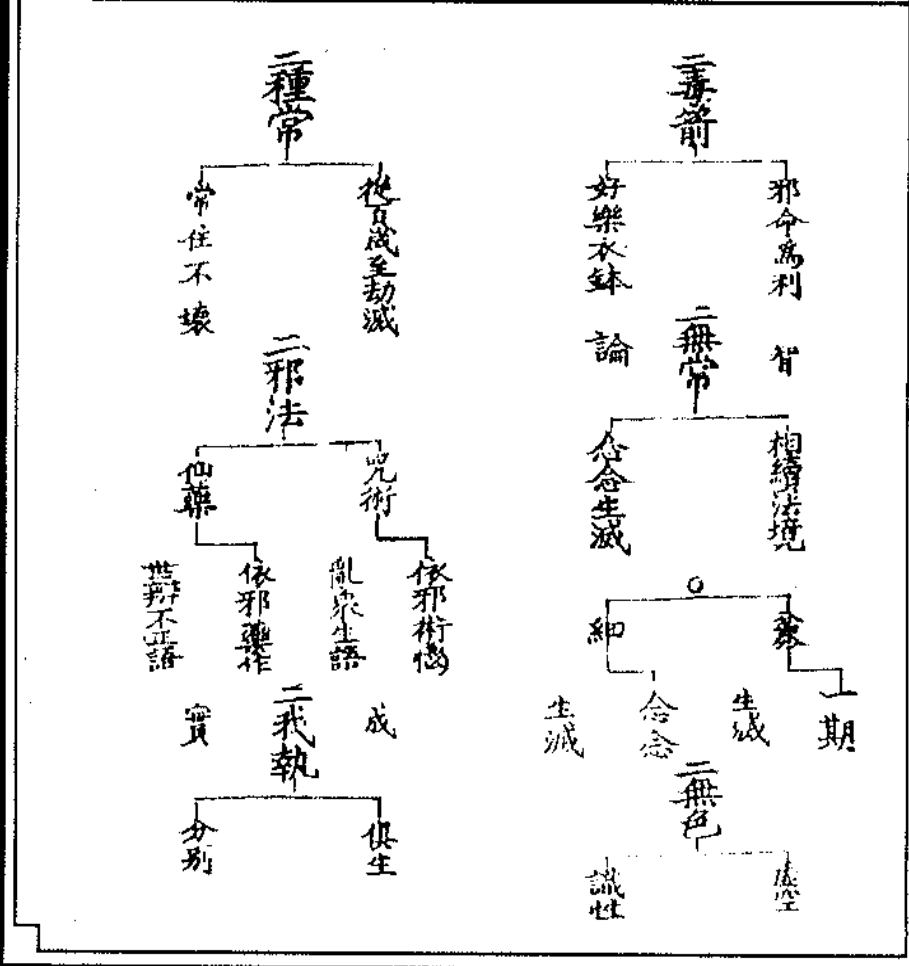 二毒箭
邪命為利
好樂衣鉢
二無常
智
論
相續法境
念念生滅
○
麁
細
一期
生滅
念念
生滅
二無色
虛空
識性
二種常
從百歲至劫滅
常住不壞
二邪法
咒術
仙藥
依邪術惱
亂眾生語
依邪藥作
世辯不正語
二我執
成
實
俱生
分別